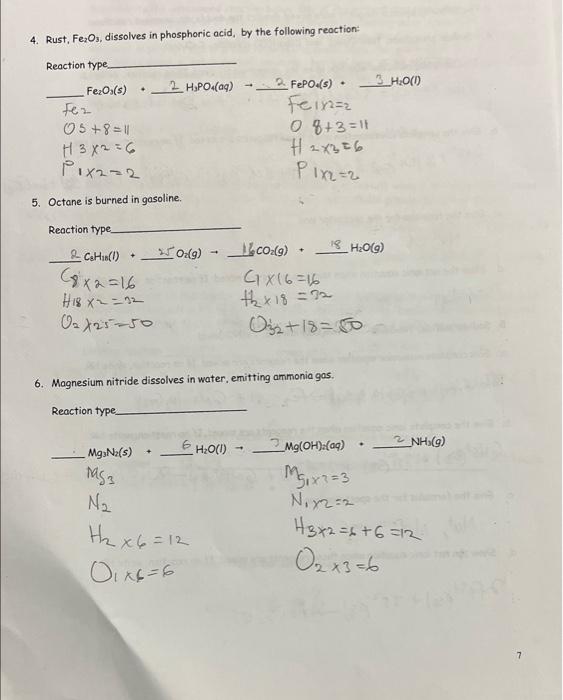 4. Rust, Fe₂O₃, dissolves in phosphoric acid, by the following reaction:
Reaction type
Fe₂O₃(s) + 2 H₃PO₄(aq) → 2 FePO₄(s) + 3 H₂O(l)
Fe2 Fe1x2=2
O 5+8=11 O 8+3=11
H 3x2=6 H 2x3=6
P 1x2=2 P 1x2=2
5. Octane is burned in gasoline.
Reaction type
2 C₈H₁₈(l) + 25 O₂(g) → 16 CO₂(g) + 18 H₂O(g)
C8x2=16 C1x16=16
H18x2=32 H2x18=32
O2x25=50 O32+18=50
6. Magnesium nitride dissolves in water, emitting ammonia gas.
Reaction type
Mg₃N₂(s) + 6 H₂O(l) → 3 Mg(OH)₂(aq) + 2 NH₃(g)
Mg3 Mg1x3=3
N2 N1x2=2
H2x6=12 H3x2=6+6=12
O1x6=6 O2x3=6
7